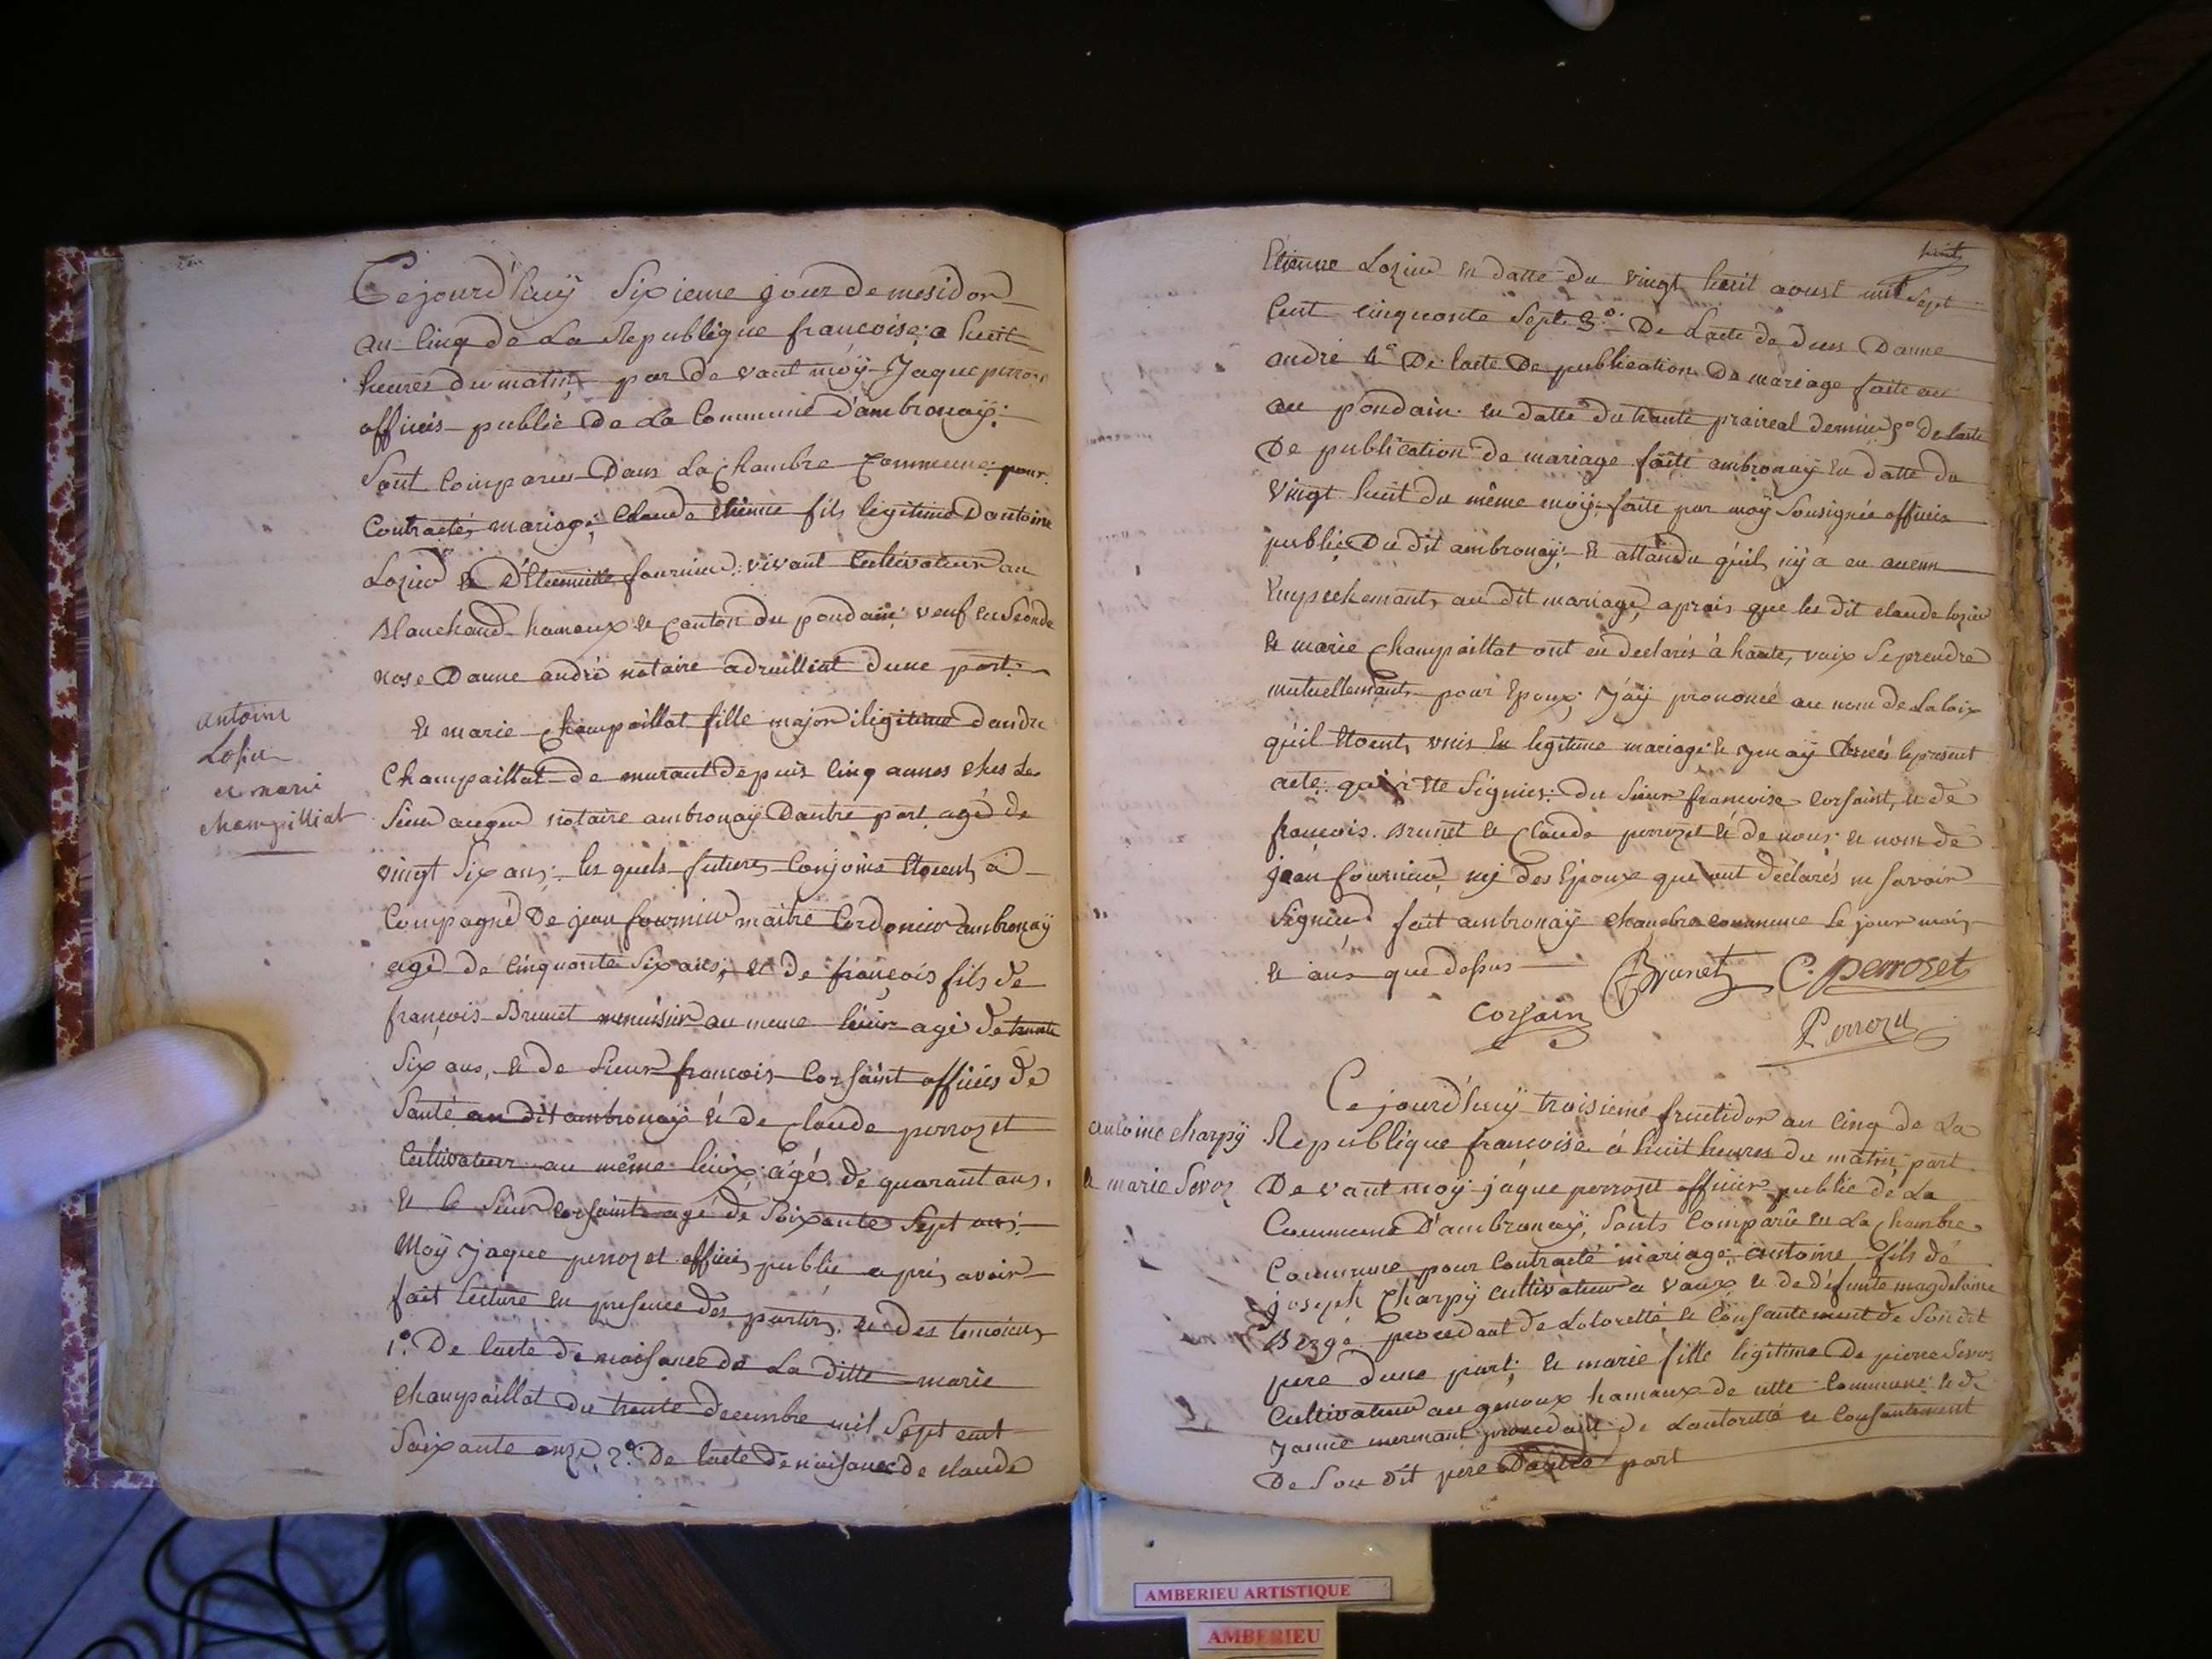 Cejourd'huÿ Sixieme jour de mesidor
an cinq de La Republique francoise; a huit
heures du matin, par de vant moÿ Jaque perrozet
officiés public de La Commune d'ambronaÿ:
Sont Comparus Dans La Chambre Commune: pour
Contractés mariage; Claude Etienne fils legitime D antoine
Lozier et d'Etiennette fournier: vivant Cultivateur au
Blanchand hamaux et Canton du pondain: veuf en Seconde
nose Danne andré notaire a druillat dune part:
et marie Champaillat fille major ilegitime dandre
Champaillat de murant depuis Cinq annes ches Le
Sieur auger notaire ambronaÿ Dautre part agéd de
vingt Six ans; les quels futurs Conjoins Etoient a
Compagné De jean fournier maitre Cordonier ambronaÿ
agé de Cinquante Six ans; et de françois fils de
françois Brunet menuisier au meme lieux agé de trante
Six ans, et de Sieur francois Corsaint officiés de
Santé au dit ambronaÿ et de Claude perrozet
Cultivateur au même lieux; agé de quarant ans,
et le Sieur Corsaint agé de Soixante Sept ans:
Moÿ Jaque perrozet officiés public apris avoir
fait Lecture en presence des partis, et des temoins
1.º De lacte de naisance de La ditte marie
Champaillat du trante decembre mil Sept cent
Soixante onze, 2.º De lacte de naisance de claude
antoine
Losier
et marie
champilliat
huit
Etienne Lozier en datte du vingt huit aoust mil Sept
Cent cinquante Sept 3.º De Lacte de deces Danne
andré 4.º De lacte De publication De mariage faite au
au pondain en datte du trante praireal dernier 5º De lacte
De publication de mariage faite ambronaÿ en datte du
vingt huit du même moÿ faite par moÿ Sousignée officier
public Du dit ambronaÿ; et attandu qu'il n'ÿ a eu aucun
Empechemant, au dit mariage, aprais que les dit claude lozier
et marie Champaillat ont eu declarés à haute, voix Se prendre
mutuellemant, pour Epoux; J'aÿ prononcé au nom de La loix
qu'il Etoient, unis En legitime mariage et j'en aÿ le present
acte qui a Ete Signies: du Sieur francoise Corsaint, et de
françois Brunet et Claude perrozet et de nous et nom de
jean fournier, nij des Epoux que ont déclarés ne Savoir
Signier fait ambronaÿ chambre commune Le jour mois
et ans que desus Brunet C. perrozet
Corsain Perrozet
Ce jourd'huÿ troisieme fructidor an Cinq de La
antoine charpÿ Republique francoise à huit heures du matin, part
et marie Sevoz De vant moÿ jaque perrozet officier public de La
Commune D'ambronaÿ, Sonts Comparu en La Chambre
Commune pour Contracté mariage; antoine fils de
joseph Charpÿ cultivateur a vaux et de défunte magdelaine
Bergé procedant de Lotoretté et Consantement de Son dit
pere dune part; et marie fille legitime De pierre Sevoz
Cultivateur au genoux hamaux de cette Commune et de
Janne mermant procedant de Lautoretté et Consantement
De Son dit pere Dautre part
AMBERIEU ARTISTIQUE
AMBERIEU